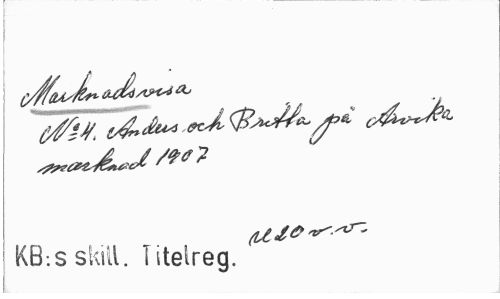 Marknadsvisa
No 4. Anders och Britta på Arvika
marknad 1907
U 20 v.v.
KB:s skill. Titelreg.